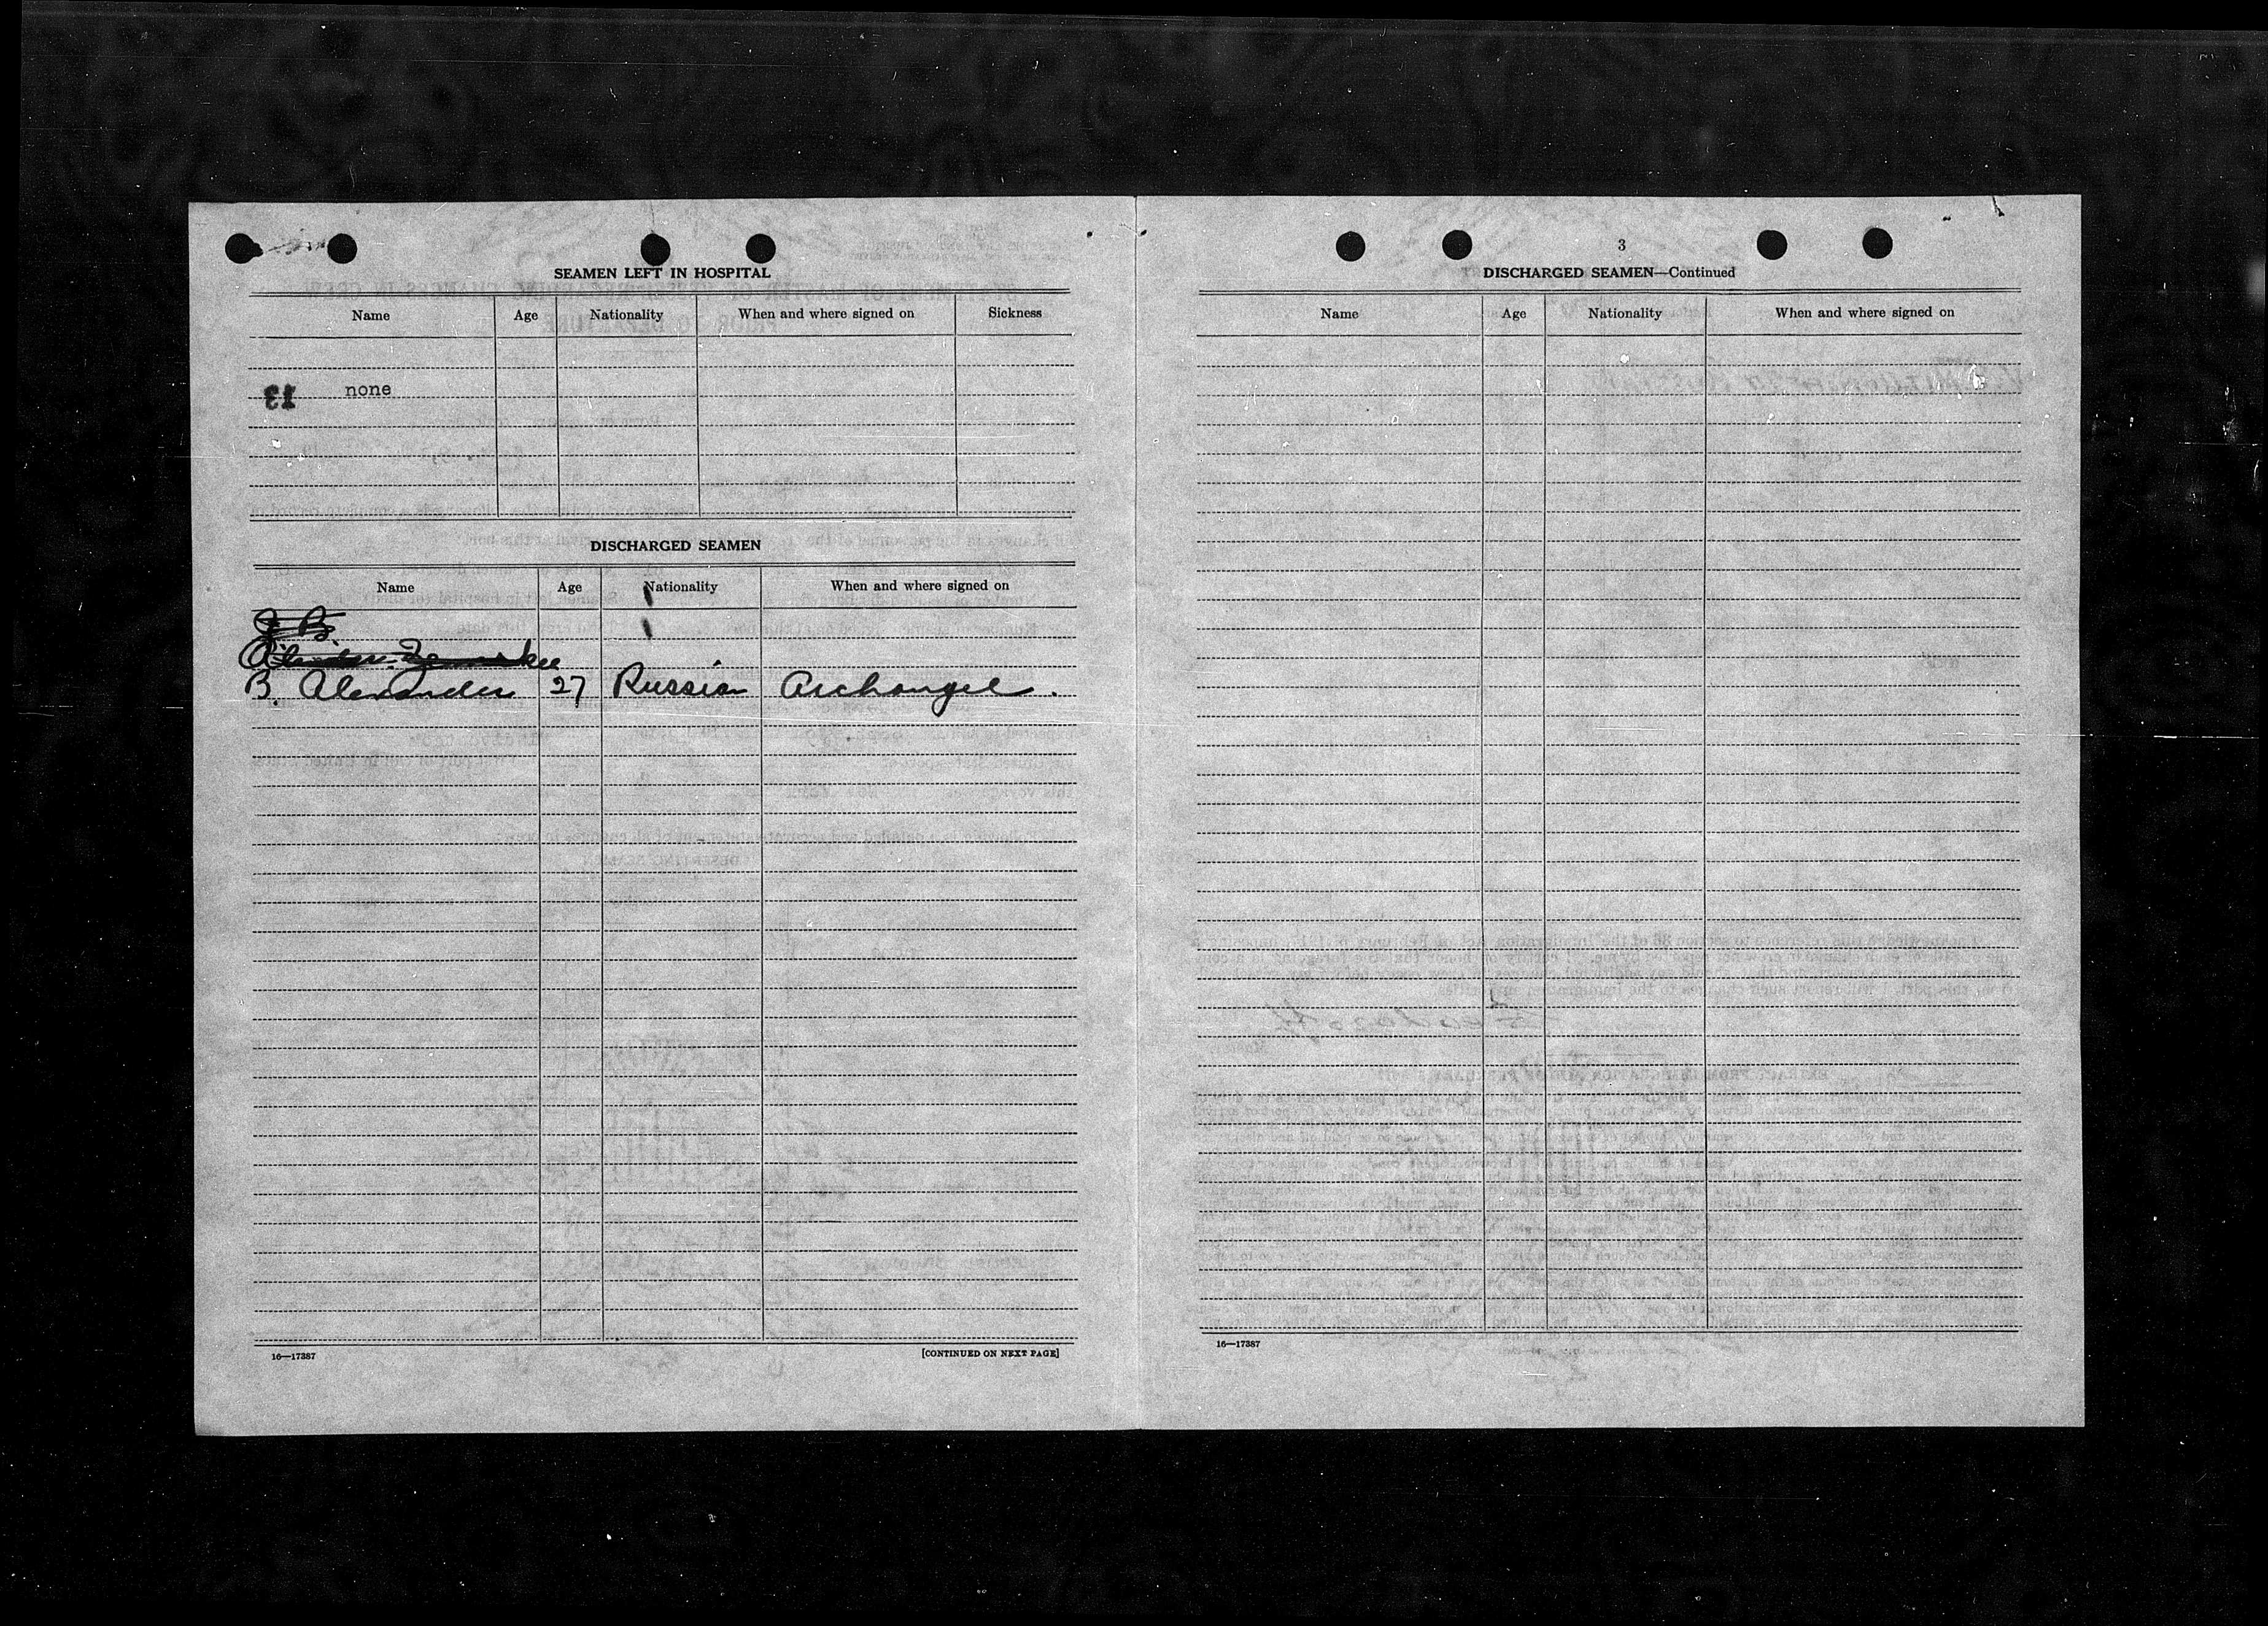 SEAMEN LEFT IN HOSPITAL
Name Age Nationality When and where signed on Sickness
13 none
DISCHARGED SEAMEN
Name Age Nationality When and where signed on
J B
B. Alexander 27 Russian Archangel.
16—17387 [CONTINUED ON NEXT PAGE]
3
DISCHARGED SEAMEN—Continued
Name Age Nationality When and where signed on
16—17387